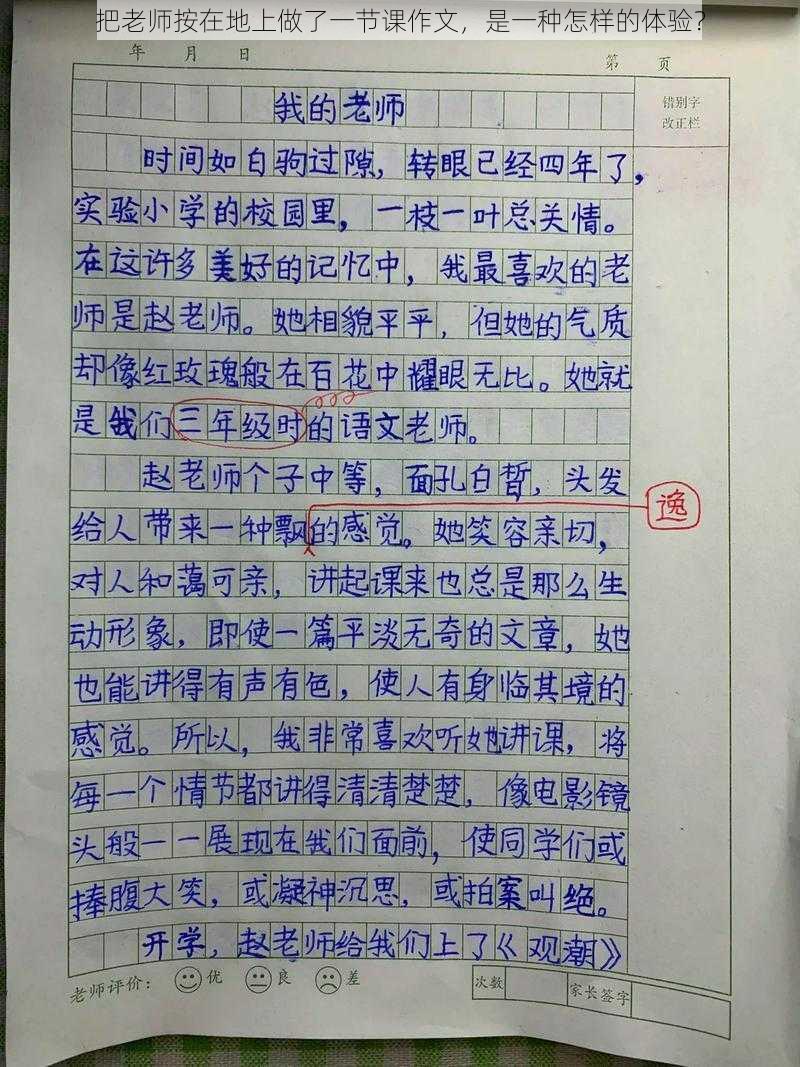 把老师按在地上做了一节课作文，是一种怎样的体验？
年 月 日
第 页
错别字
改正栏
我的老师
时间如白驹过隙，转眼已经四年了，
实验小学的校园里，一枝一叶总关情。
在这许多美好的记忆中，我最喜欢的老
师是赵老师。她相貌平平，但她的气质
却像红玫瑰般在百花中耀眼无比。她就
是我们三年级时的语文老师。
赵老师个子中等，面孔白晳，头发
给人带来一种飘的感觉。她笑容亲切，
逸
对人和蔼可亲，讲起课来也总是那么生
动形象，即使一篇平淡无奇的文章，她
也能讲得有声有色，使人有身临其境的
感觉。所以，我非常喜欢听她讲课，将
每一个情节都讲得清清楚楚，像电影镜
头般一一展现在我们面前，使同学们或
捧腹大笑，或凝神沉思，或拍案叫绝。
开学，赵老师给我们上了《观潮》
老师评价： 优 良 差 次数 家长签字